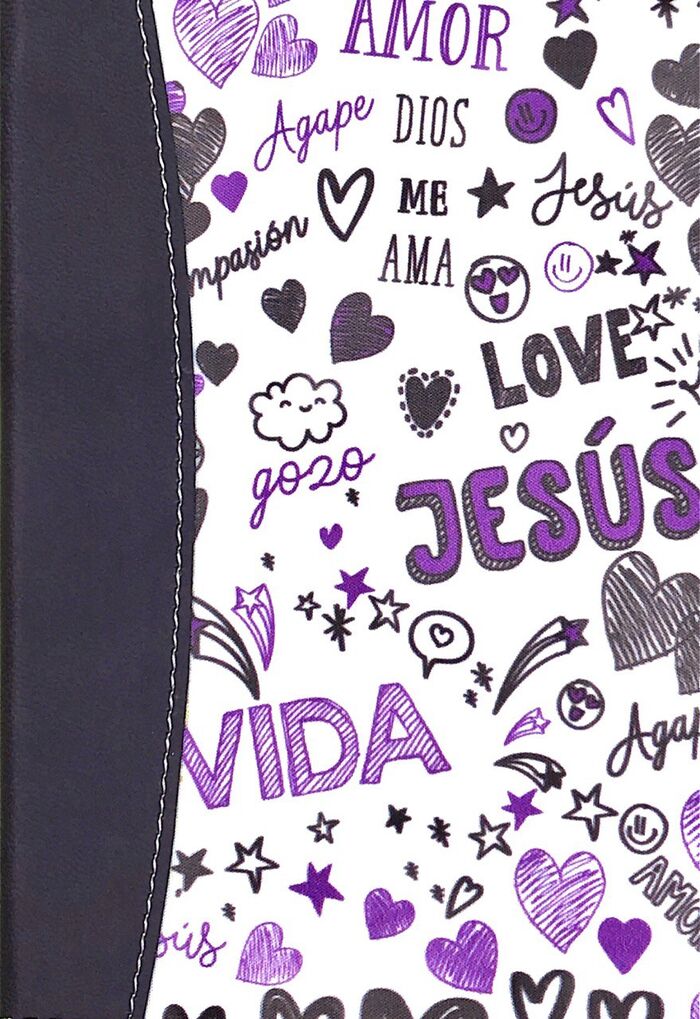 AMOR
Agape
DIOS
ME
AMA
Jesús
mpasión
LOVE
gozo
JESÚS
VIDA
Agap
AMO
sús